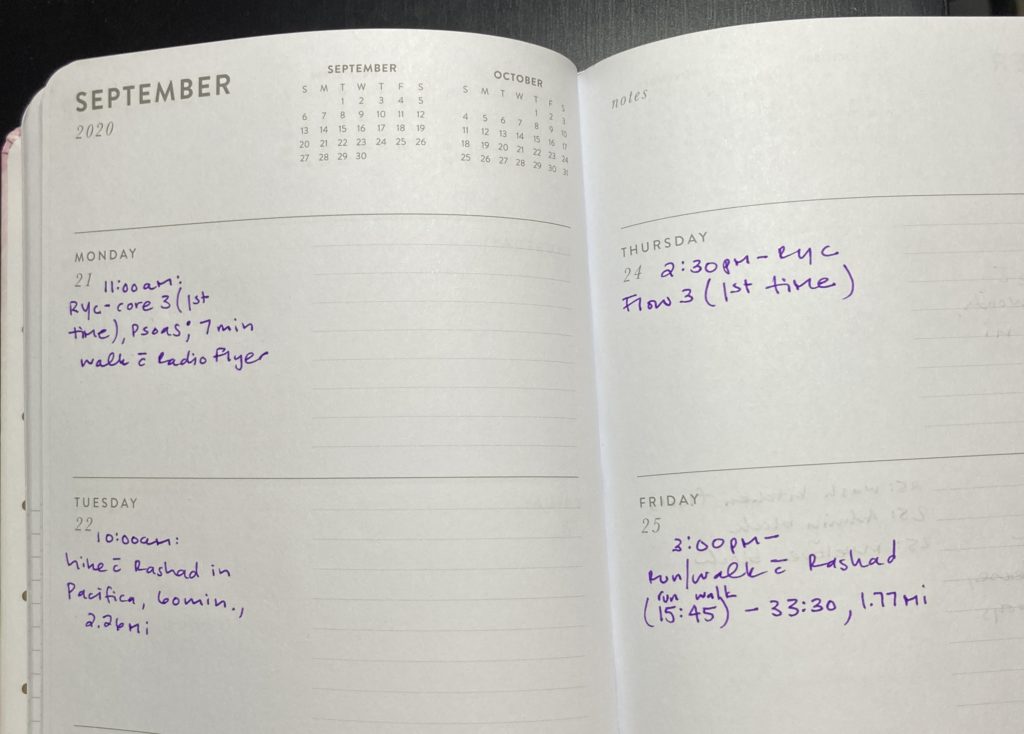 SEPTEMBER
2020
SEPTEMBER
S M T W T F S
1 2 3 4 5
6 7 8 9 10 11 12
13 14 15 16 17 18 19
20 21 22 23 24 25 26
27 28 29 30
OCTOBER
S M T W T F S
1 2 3
4 5 6 7 8 9 10
11 12 13 14 15 16 17
18 19 20 21 22 23 24
25 26 27 28 29 30 31
MONDAY
21 11:00am:
RYC-core 3 (1st
time), Psoas; 7 min
walk c̄ Radio Flyer
TUESDAY
22 10:00am:
hike c̄ Rashad in
Pacifica, 60min.,
2.26mi
notes
THURSDAY
24 2:30PM - RYC
Flow 3 (1st time)
FRIDAY
25
3:00PM-
run/walk c̄ Rashad
run walk
(15:45) - 33:30, 1.77mi